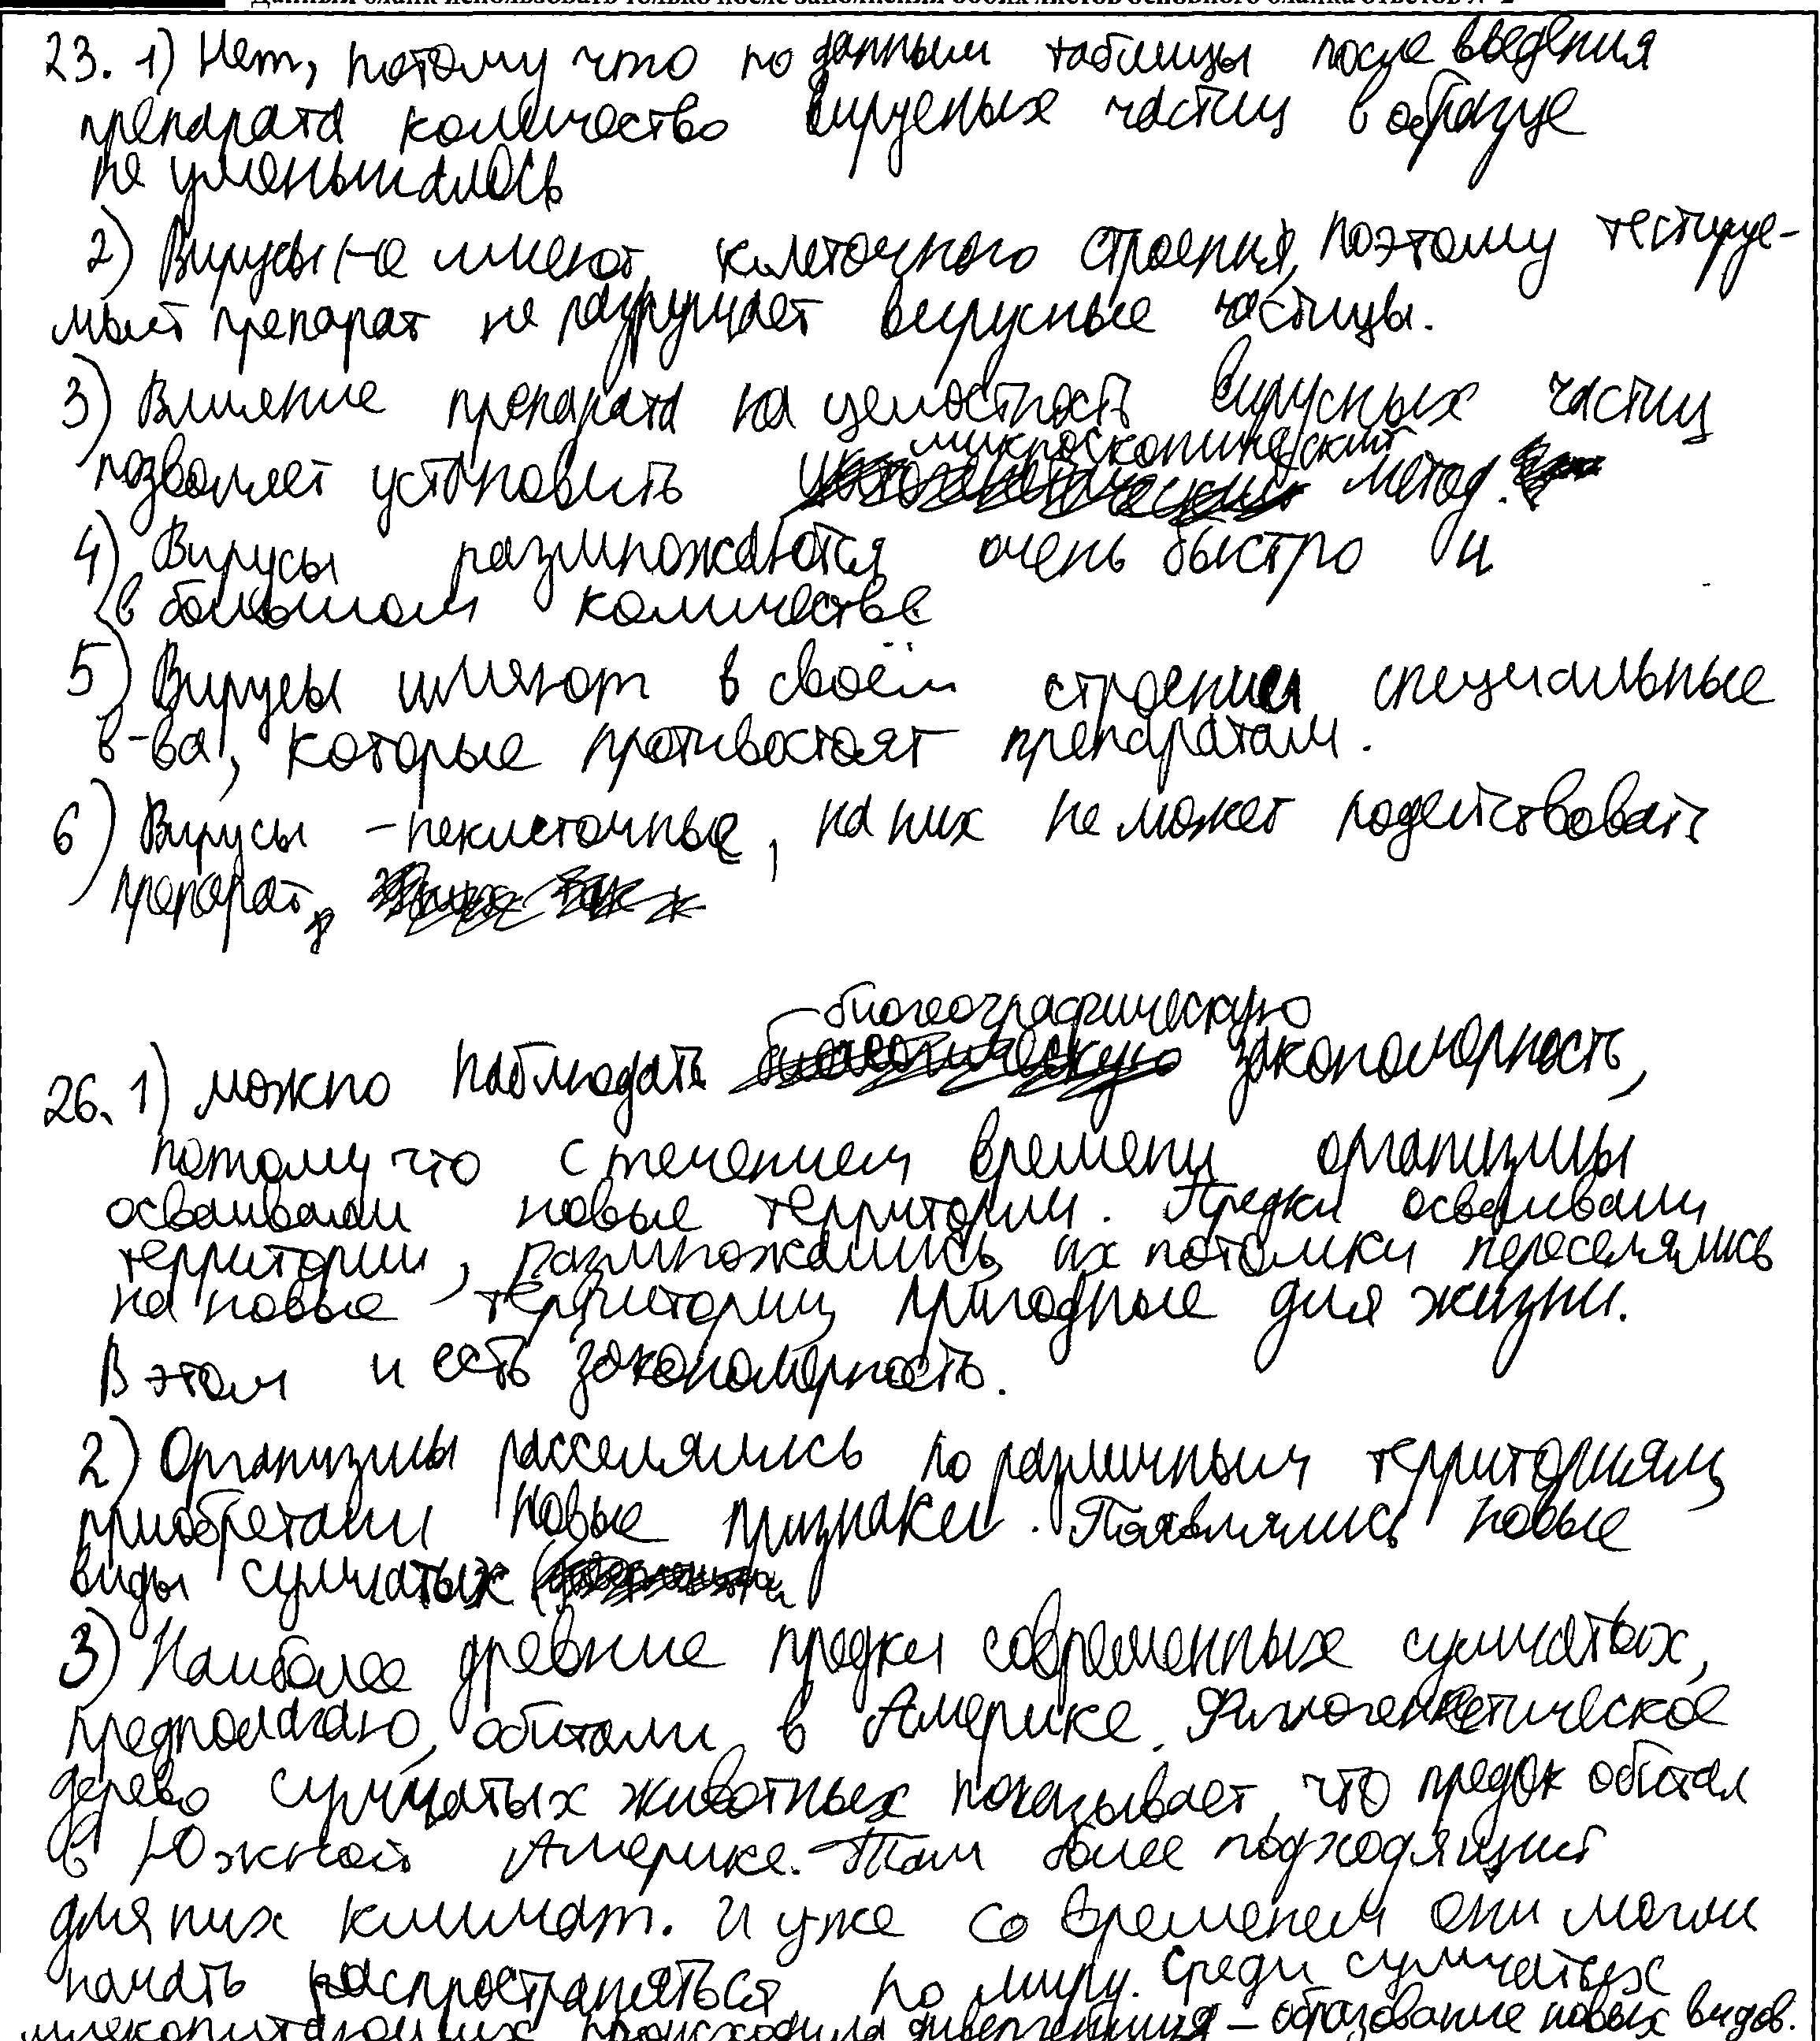 Данный бланк использовать только после заполнения обоих листов основного бланка ответов № 2
23. 1) Нет, потому что по данным таблицы после введения
препарата количество вирусных частиц в образце
не уменьшалось
2) Вирусы не имеют клеточного строения, поэтому тестируе-
мый препарат не разрушает вирусные частицы.
3) Влияние препарата на целостность вирусных частиц
позволяет установить микроскопический метод.
4) Вирусы размножаются очень быстро и
в большом количестве
5) Вирусы имеют в своём строении специальные
в-ва, которые противостоят препаратам.
6) Вирусы - неклеточные, на них не может подействовать
препарат
26. 1) можно наблюдать биогеографическую закономерность,
потому что с течением времени организмы
осваивали новые территории. Предки осваивали
территории, размножались, их потомки переселялись
на новые территории, пригодные для жизни.
В этом и есть закономерность.
2) Организмы расселялись по различным территориям,
приобретали новые признаки. Появлялись новые
виды сумчатых
3) Наиболее древние предки современных сумчатых,
предполагаю, обитали в Америке. Филогенетическое
дерево сумчатых животных показывает, что предок обитал
в Южной Америке. Там более подходящий
для них климат. И уже со временем они могли
начать распространяться по миру. Среди сумчатых
млекопитающих происходила дивергенция - образование новых видов.